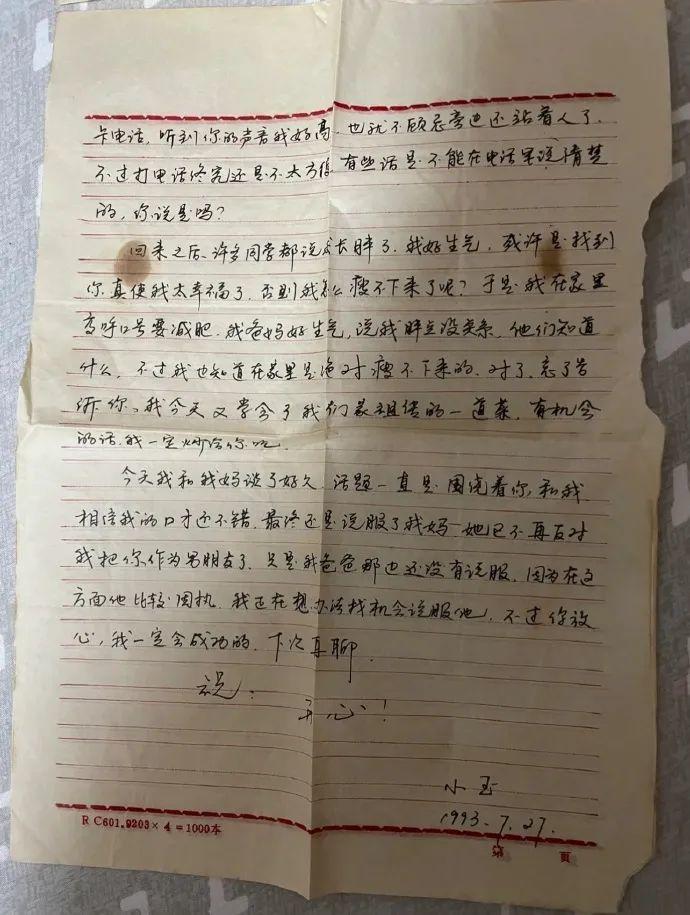 卡电话，听到你的声音我好高，也就不顾忌旁边还站着人了.
不过打电话终究还是不太方便，有些话是不能在电话里说清楚
的，你说是吗？
回来之后，许多同学都说我长胖了，我好生气，或许是找到
你真使我太幸福了，否则我怎么瘦不下来了呢？于是我在家里
高呼口号要减肥，我爸妈好生气，说我胖点没关系，他们知道
什么，不过我也知道在家里是绝对瘦不下来的，对了，忘了告
诉你，我今天又学会了我们家祖传的一道菜，有机会
的话，我一定炒给你吃.
今天我和我妈谈了好久，话题一直是围绕着你和我，
相信我的口才还不错，最终还是说服了我妈，她已不再反对
我把你作为男朋友了，只是我爸爸那边还没有说服，因为在这
方面他比较固执，我正在想办法找机会说服他，不过你放
心，我一定会成功的，下次再聊.
祝：
开心！
小玉
1993.7.27.
R C601.9203×4=1000本
第 页